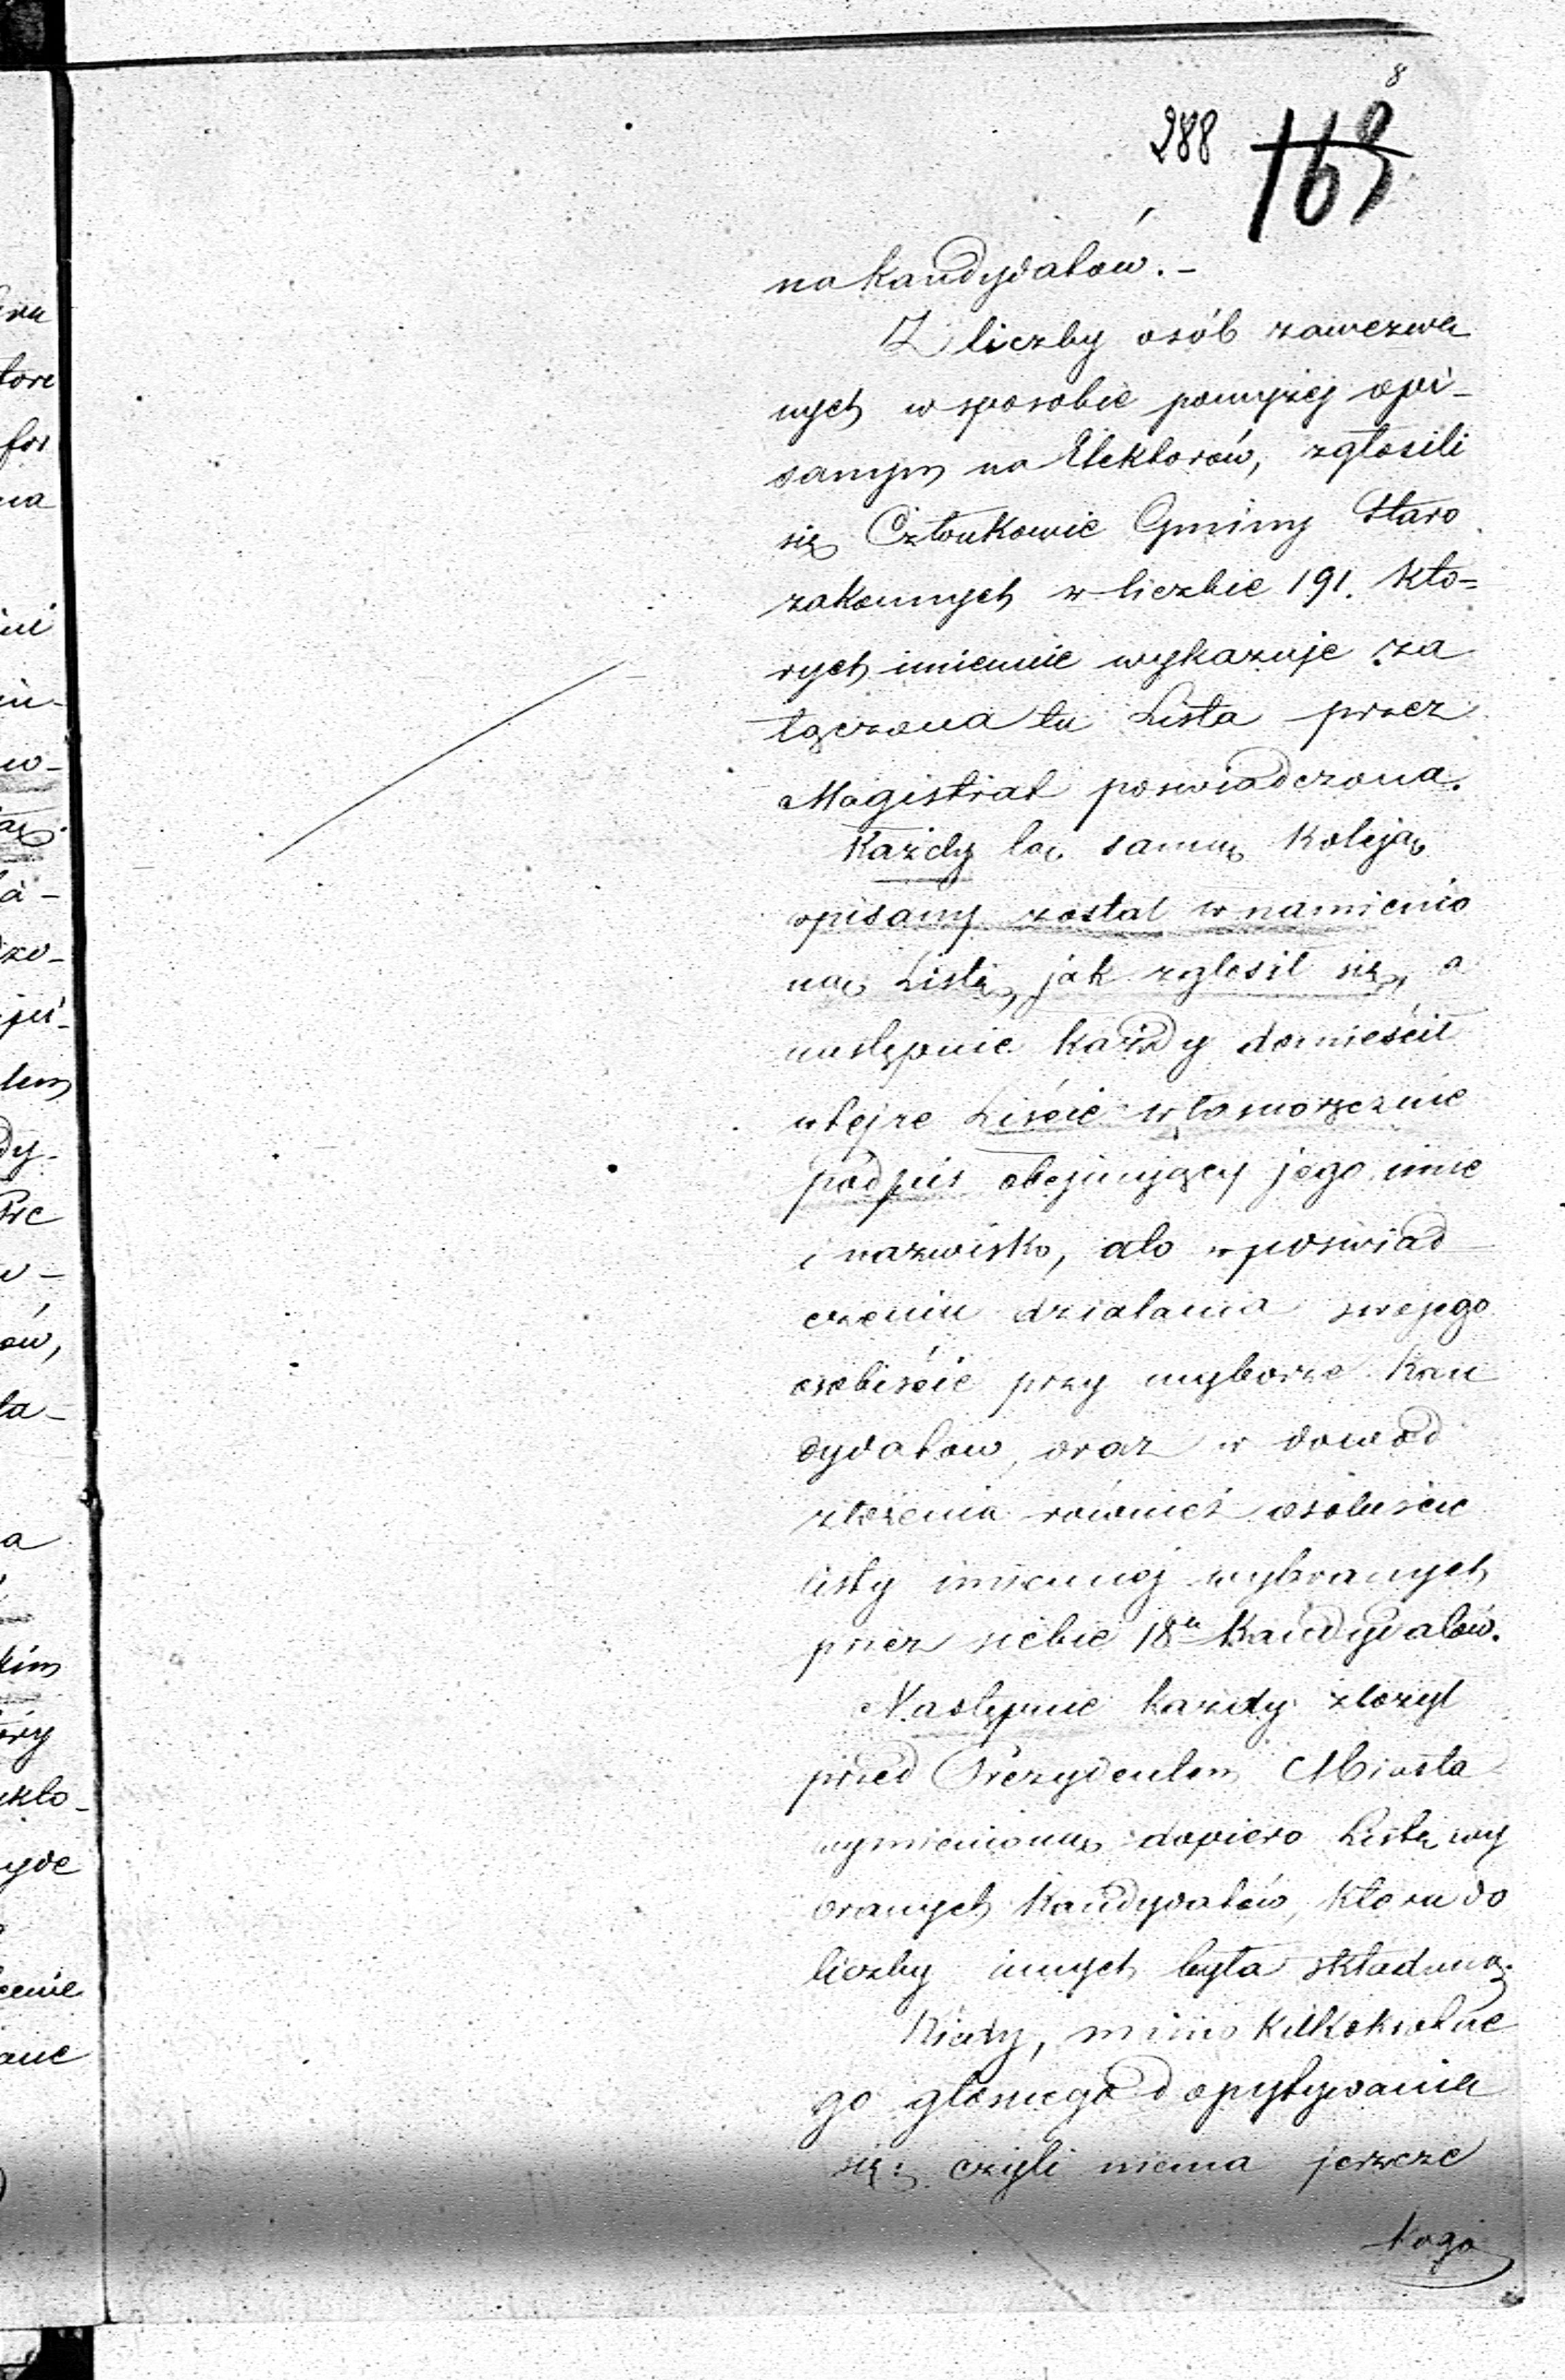 8
288 168
na Kandydatów. –
Z liczby osób zawezwa
nych w sposobie powyżej opi-
sanym na Elektorów, zgłosili
się Członkowie Gminy Staro
zakonnych w liczbie 191. któ=
rych imiennie wykazuje za
łączona tu Lista przez
Magistrat poswiadczona.
Każdy tą samą koleją
opisany został w namienio
ną Listę, jak zgłosił się, a
następnie każdy domieścił
w tejże Liście własnoręcznie
podpis obejmujący jego imie
i nazwisko, a to w poswiad-
czeniu działania swojego
osobiście przy wyborze Kan
dydatow, oraz w dowod
złożenia również osobiście
listy imiennej wybranych
przez siebie 18tu Kandydatów.
Następnie każdy złożył
przed Prezydentem Miasta
wymienioną dopiero Listę wy
branych Kandydatów, która do
liczby innych była składaną.
Kiedy, mimo kilkokrotne
go głosnego dopytywania
się: czyli niema jeszcze
kogo